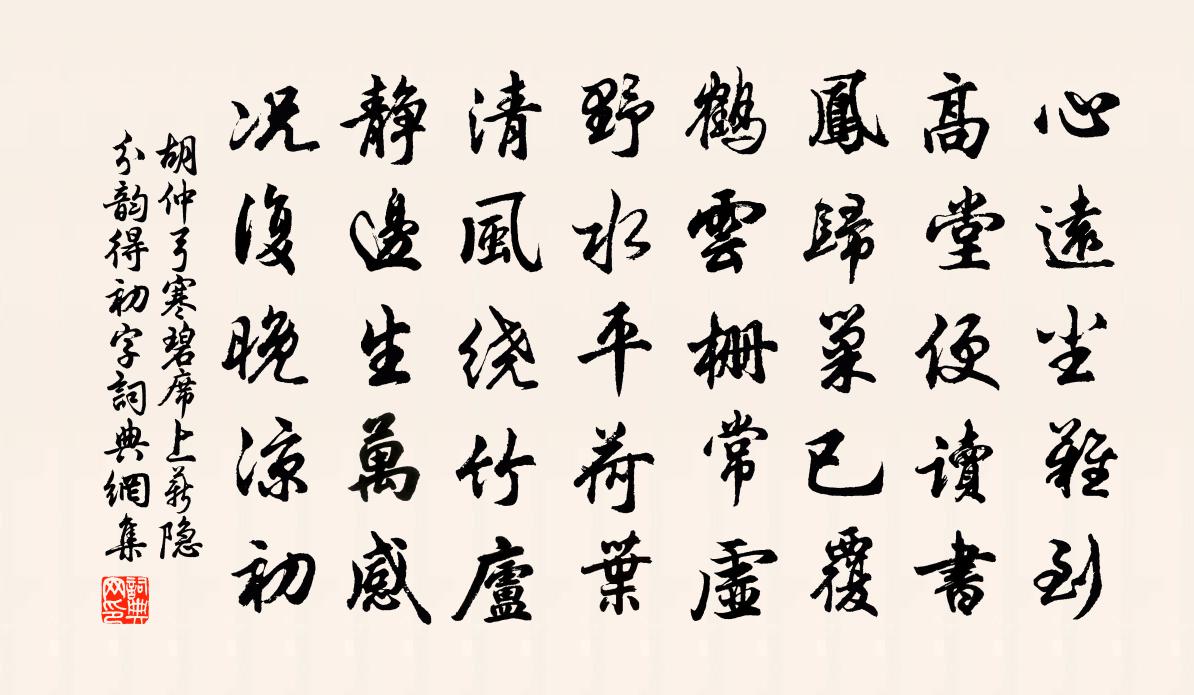 心遠尘難到
高堂便讀書
鳳歸巢已覆
鶴雲栅常虛
野水平荷葉
清風绕竹廬
静邊生萬感
况復晚凉初
胡仲弓寒碧席上薪隐
分韵得初字詞典網集
詞典网印